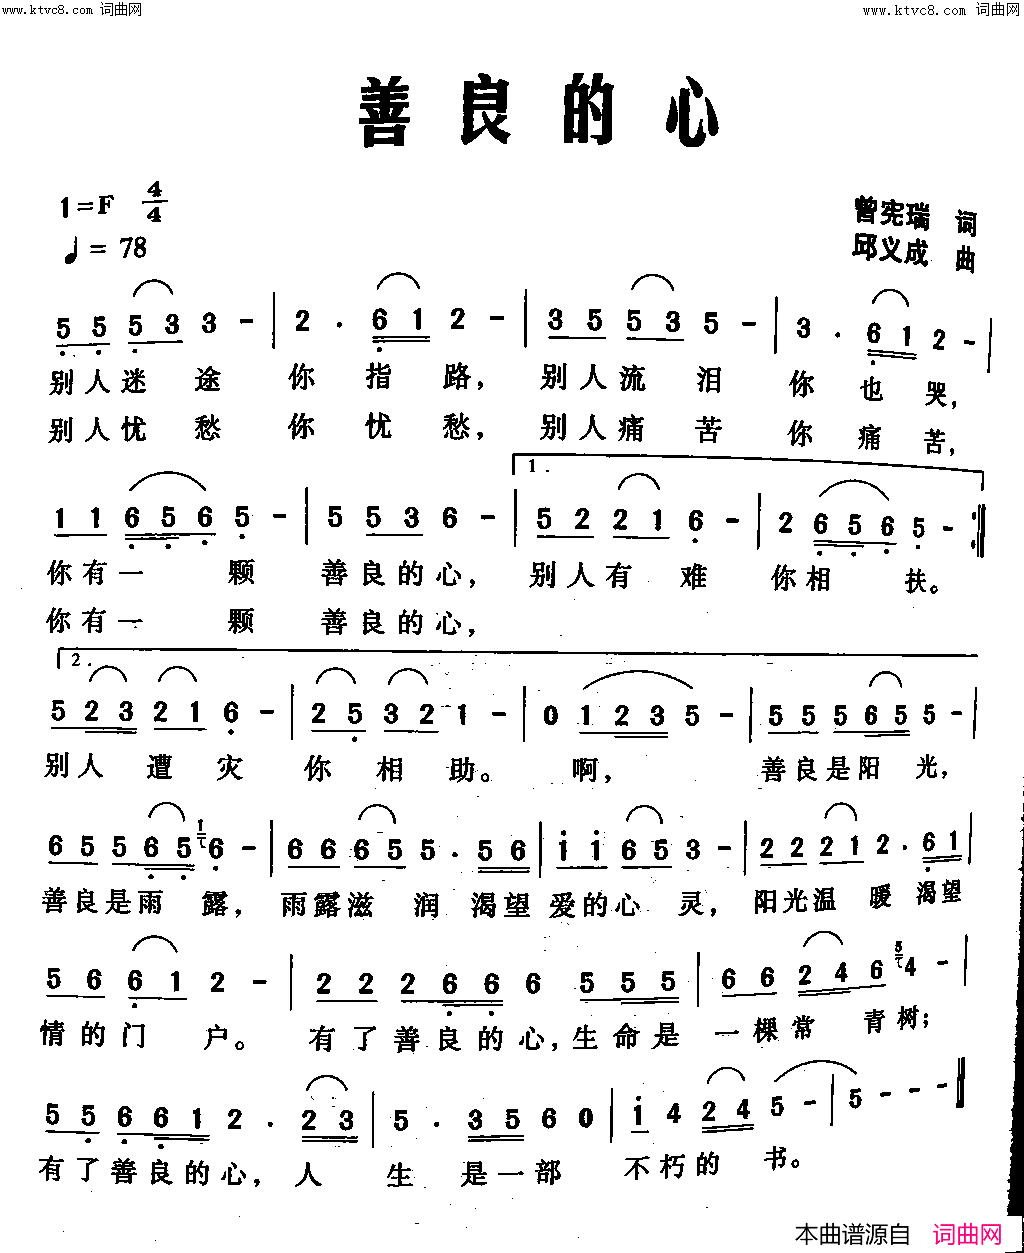 www.ktvc8.com 词曲网
www.ktvc8.com 词曲网
善良的心
1=F 4/4
♩= 78
曾宪瑞 词
邱义成 曲
5 5 5 3 3 - | 2 . 6 1 2 - | 3 5 5 3 5 - | 3 . 6 1 2 - |
别人迷途 你指路, 别人流泪 你也哭,
别人忧愁 你忧愁, 别人痛苦 你痛苦,
1.
1 1 6 5 6 5 - | 5 5 3 6 - | 5 2 2 1 6 - | 2 6 5 6 5 - :|
你有一颗 善良的心, 别人有难 你相扶。
你有一颗 善良的心,
2.
5 2 3 2 1 6 - | 2 5 3 2 1 - | 0 1 2 3 5 - | 5 5 5 6 5 5 - |
别人遭灾 你相助。 啊, 善良是阳光,
6 5 5 6 5 1 6 - | 6 6 6 5 5 . 5 6 | i i 6 5 3 - | 2 2 2 1 2 . 6 1 |
善良是雨露, 雨露滋润渴望爱的心灵, 阳光温暖渴望
5 6 6 1 2 - | 2 2 2 6 6 6 5 5 5 | 6 6 2 4 6 5 4 - |
情的门户。 有了善良的心,生命是一棵常青树;
5 5 6 6 1 2 . 2 3 | 5 . 3 5 6 0 | i 4 2 4 5 - | 5 - - - ‖
有了善良的心, 人生是一部 不朽的书。
本曲谱源自 词曲网